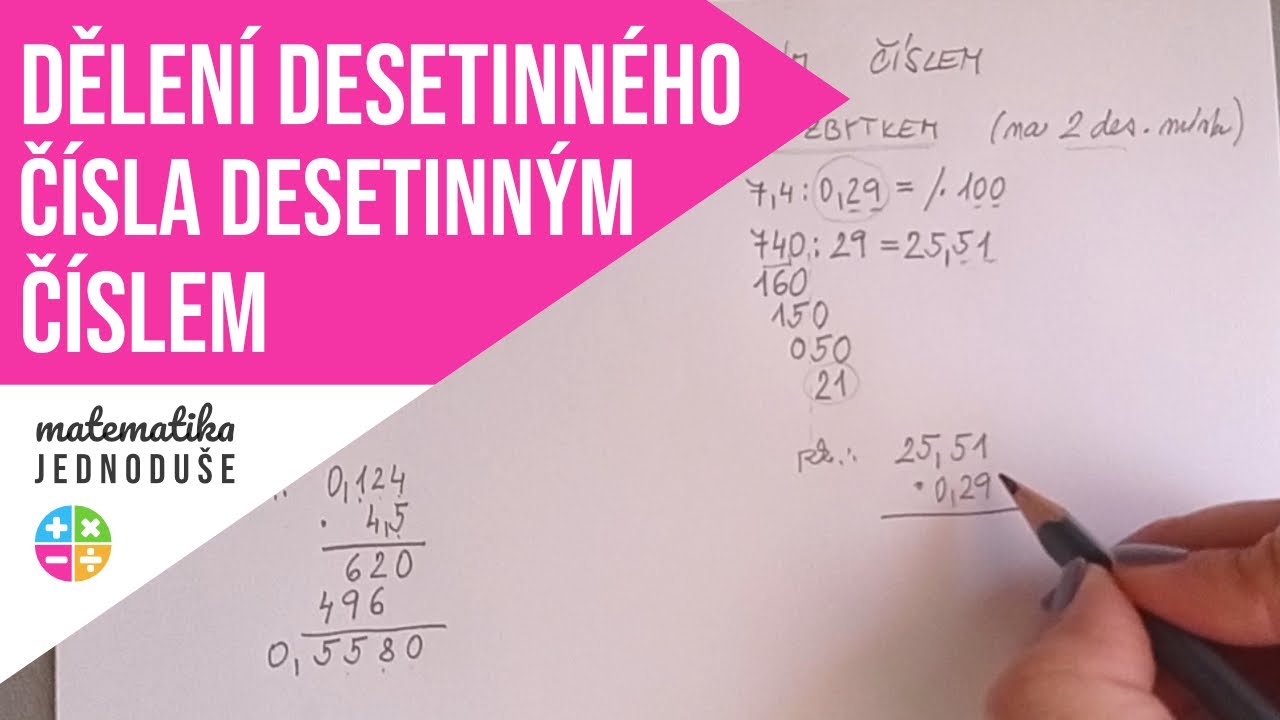 DĚLENÍ DESETINNÉHO
ČÍSLA DESETINNÝM
ČÍSLEM
matematika
JEDNODUŠE
ČÍSLEM
ZBYTKEM (na 2 des. místa)
7,4 : 0,29 = /. 100
740 : 29 = 25,51
160
150
050
21
zk.: 25,51
· 0,29
0,124
· 4,5
620
496
0,5580